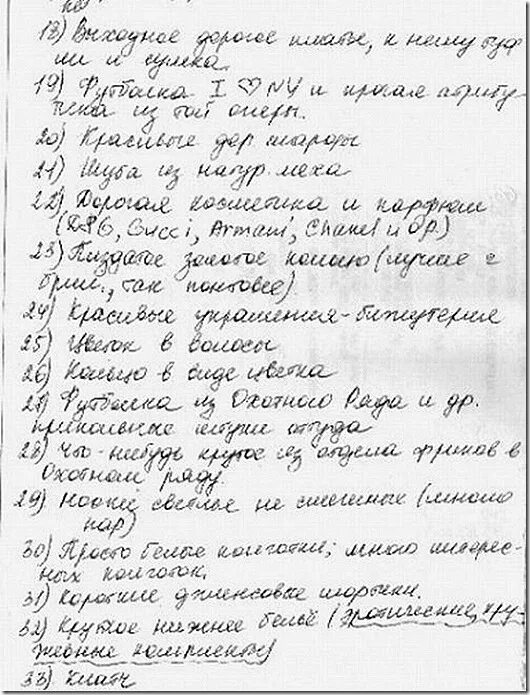 18) Выходное дорогое платье, к нему туф
ли и сумка.
19) Футболка I ♡ NY и прочая атрибу
тика из той оперы.
20) Красивые дор. шарфы
21) Шуба из натур. меха
22) Дорогая косметика и парфюм
(D&G, Gucci, Armani, Chanel и др.)
23) Пиздатое золотое кольцо (лучше с
брил., так понтовее)
24) Красивые украшения-бижутерия
25) Цветок в волосы
26) Кольцо в виде цветка
27) Футболка из Охотного Ряда и др.
прикольные штуки оттуда
28) Что-нибудь крутое из отдела фриков в
Охотном ряду.
29) Носки светлые не смешных (много
пар)
30) Просто белые колготки; много интерес-
ных колготок.
31) Короткие джинсовые шортики.
32) Крутое нижнее бельё (эротические, кру
жевные комплекты)
33) Клатч